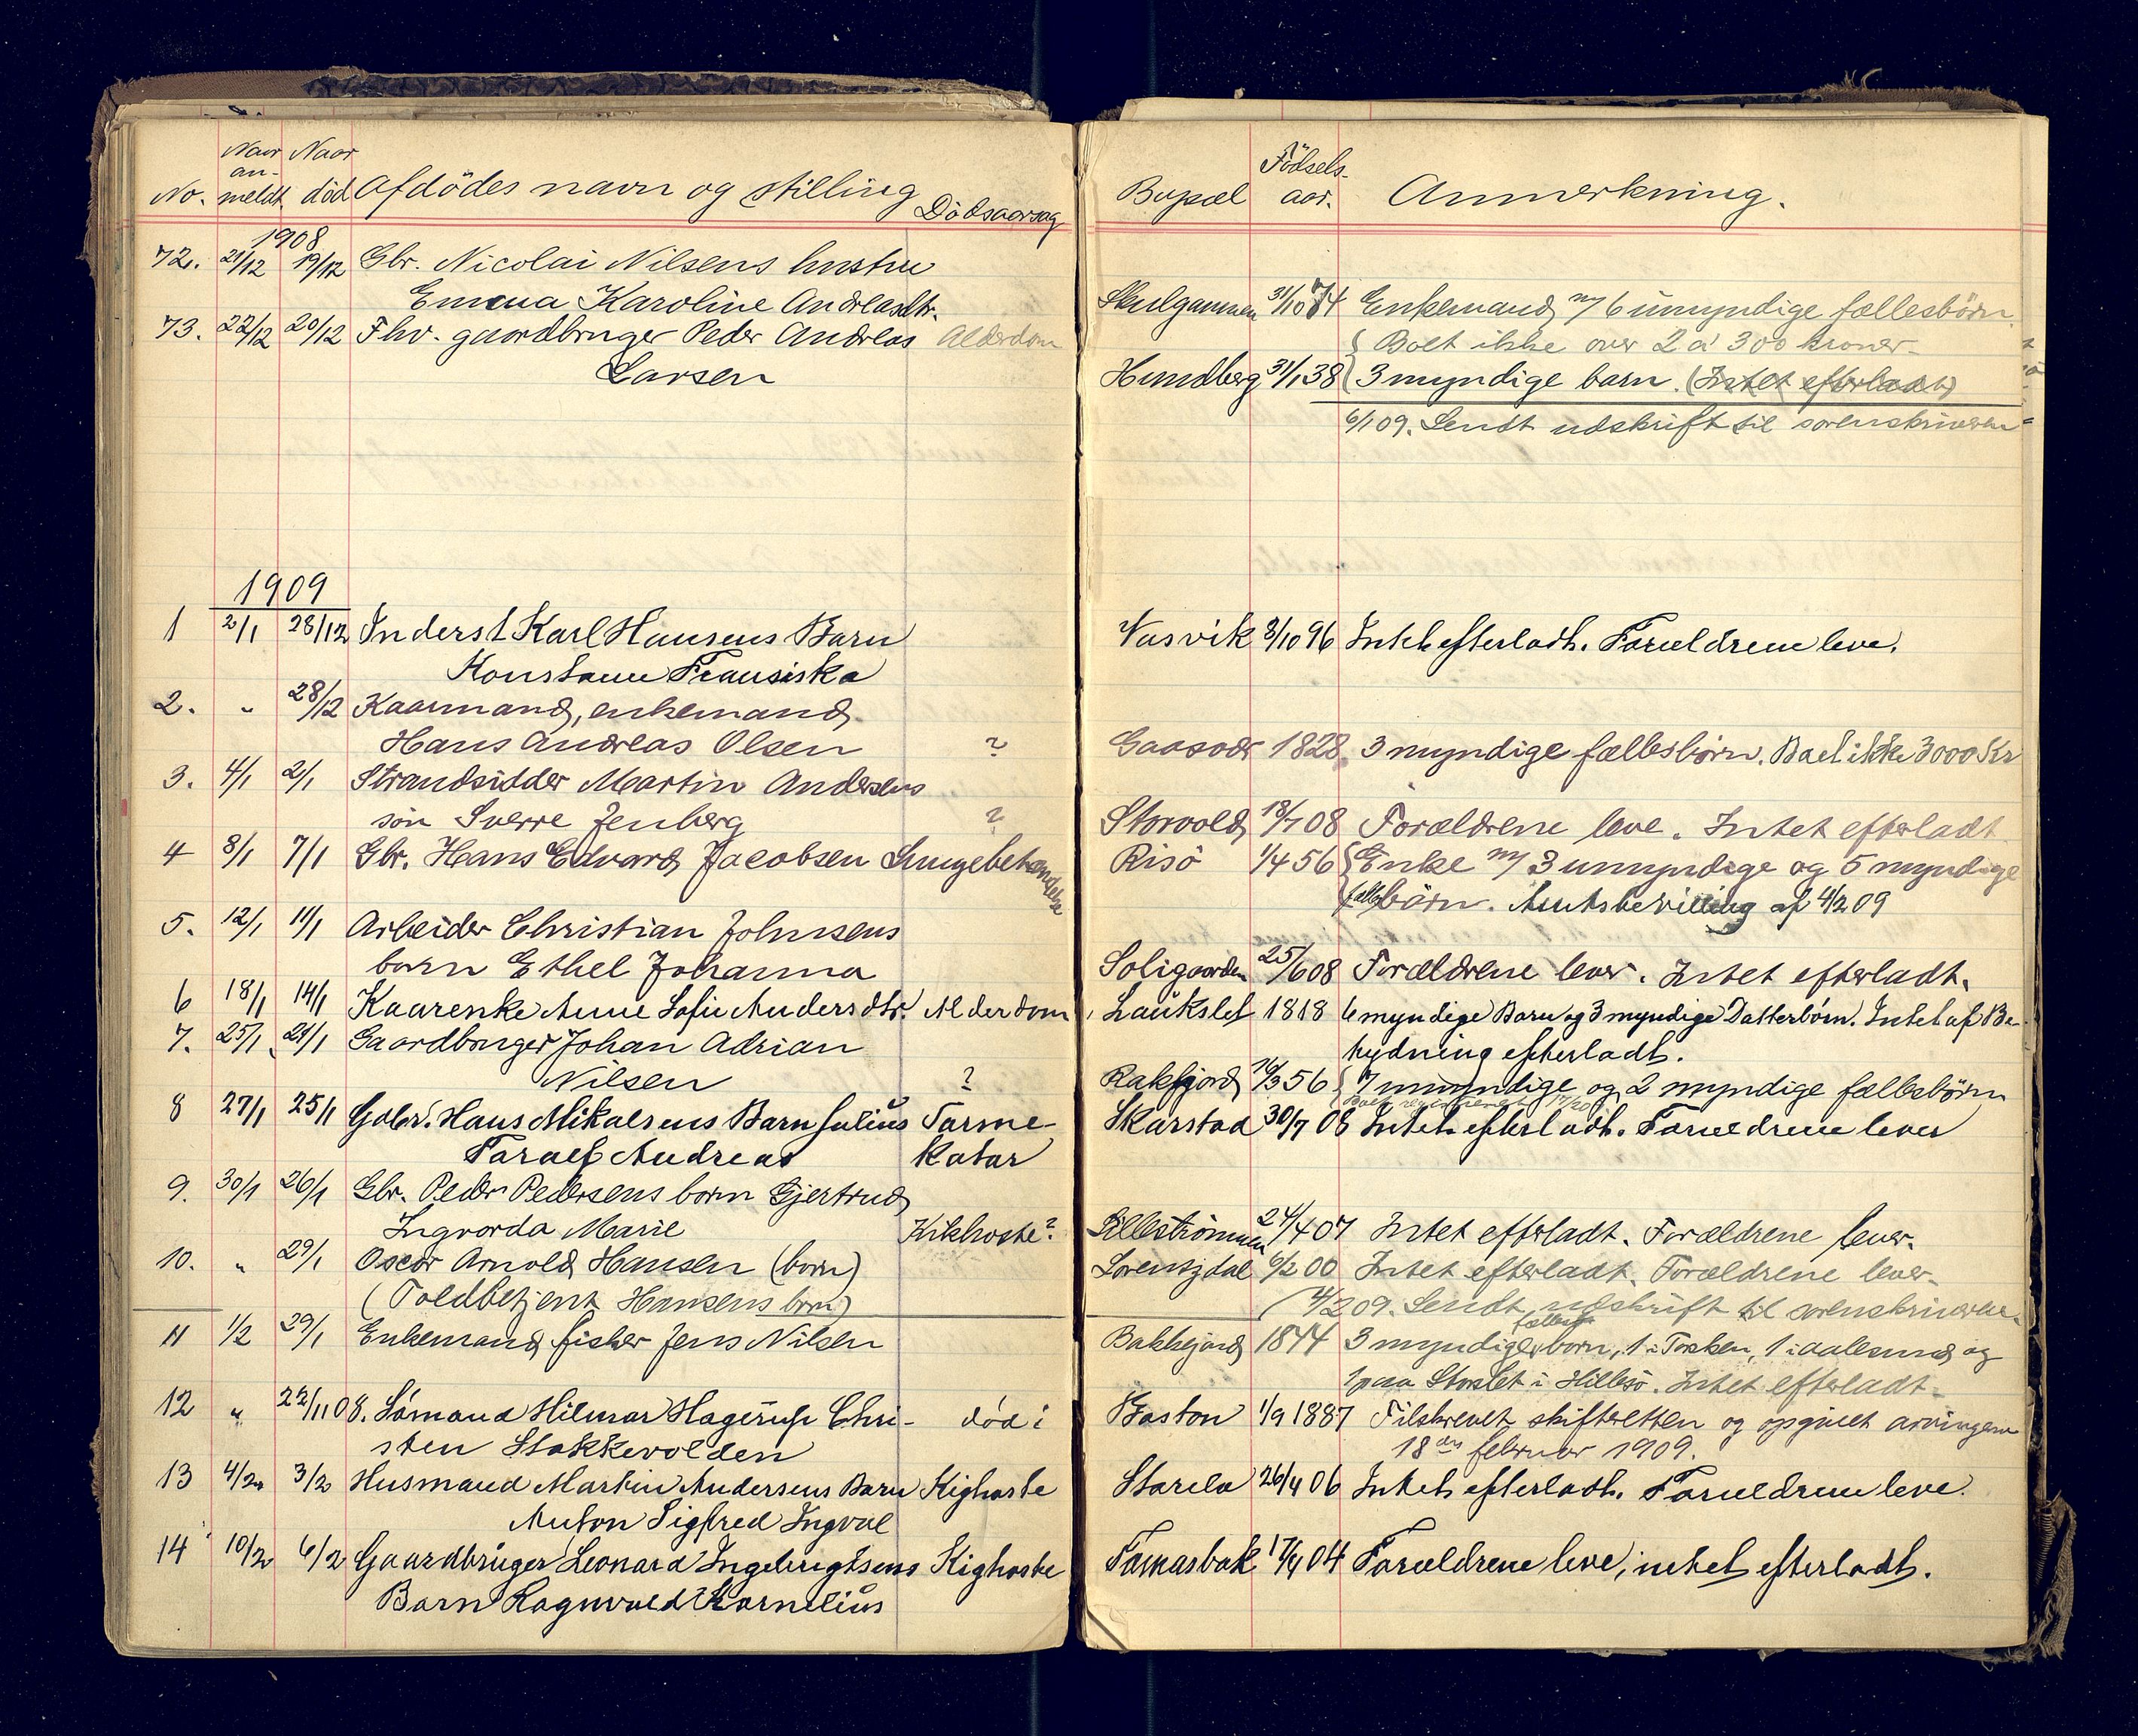 No. Naar an- meldt. Naar död Afdödes navn og stilling Dödsaarsag
1908
72. 21/12 19/12 Gbr. Nicolai Nilsens hustru
Emma Karoline Andreasdtr.
73. 22/12 20/12 Fhv. gaardbruger Peder Andreas Alderdom
Larsen
1909
1 2/1 28/12 Inderst Karl Hansens Barn
Konstanse Fransiska
2. " 28/12 Kaarmand, enkemand
Hans Andreas Olsen ?
3. 4/1 2/1 Strandsidder Martin Andersens
sön Sverre Jenberg ?
4 8/1 7/1 Gbr. Hans Edvard Jacobsen Lungebetændelse
5. 12/1 11/1 Arbeider Christian Johnsens
barn Ethel Johanna
6 18/1 14/1 Kaarenke Anne Sofie Andersdtr. Alderdom
7. 25/1 24/1 Gaardbruger Johan Adrian
Nilsen ?
8 27/1 25/1 Gdbr. Hans Mikalsens Barn Julius Tarme-
Toralf Andreas katar
9. 30/1 26/1 Gbr. Peder Pedersens barn Gjertrud
Ingvarda Marie Kikhoste?
10. " 29/1 Oscar Arnold Hansen (barn)
(Toldbetjent Hansens barn)
11 1/2 29/1 Enkemand fisker Jens Nilsen
12 " 22/11 08. Sömand Hilmar Hagerup Chri- död i
sten Stakkevolden
13 4/2 3/2 Husmand Martin Andersens Barn Kighoste
Anton Sigfred Ingval
14 10/2 6/2 Gaardbruger Leonard Ingebrigtsens Kighoste
Barn Ragnvald Kornelius
Bopæl Födsels- aar. Anmerkning.
Skulgammen 31/10 74 Enkemand m/ 6 umyndige fællesbörn.
Boet ikke over 2 a' 300 kroner.
Hundberg 31/1 38 3 myndige barn. (Intet efterladt)
6/1 09. Sendt udskrift til sorenskriveren
Vasvik 3/10 96 Intet efterladt. Forældrene leve.
Gaasvær 1828 3 myndige fællesbörn. Boet ikke 3000 Kr
Storvold 18/7 08 Forældrene leve. Intet efterladt
Risö 1/4 56 Enke m/ 3 umyndige og 5 myndige
fællesbörn. Amtsbevilling af 4/2 09
Soligaarden 25/6 08 Forældrene lever. Intet efterladt.
Laukslet 1818 6 myndige Barn og 3 myndige Datterbörn. Intet af Be-
tydning efterladt.
Rakfjord 16/3 56 7 umyndige og 2 myndige fællesbörn
Skarstad 30/7 08 Intet efterladt. Forældrene lever
Lilleströmmen 24/4 07 Intet efterladt. Forældrene lever.
Lorentzdal 6/2 00 Intet efterladt. Forældrene lever.
(4/2 09. Sendt udskrift til sorenskriveren.
Bakkejord 1844 3 myndige fælles börn, 1 i Torsken, 1 i Aalesund og
1 paa Storslet i Hillesö. Intet efterladt.
Boston 1/9 1887 Tilskrevet skifteretten og opgivet arvingerne
18de februar 1909.
Storelv 26/4 06 Intet efterladt. Forældrene leve.
Tomasbak 17/4 04 Forældrene leve, intet efterladt.